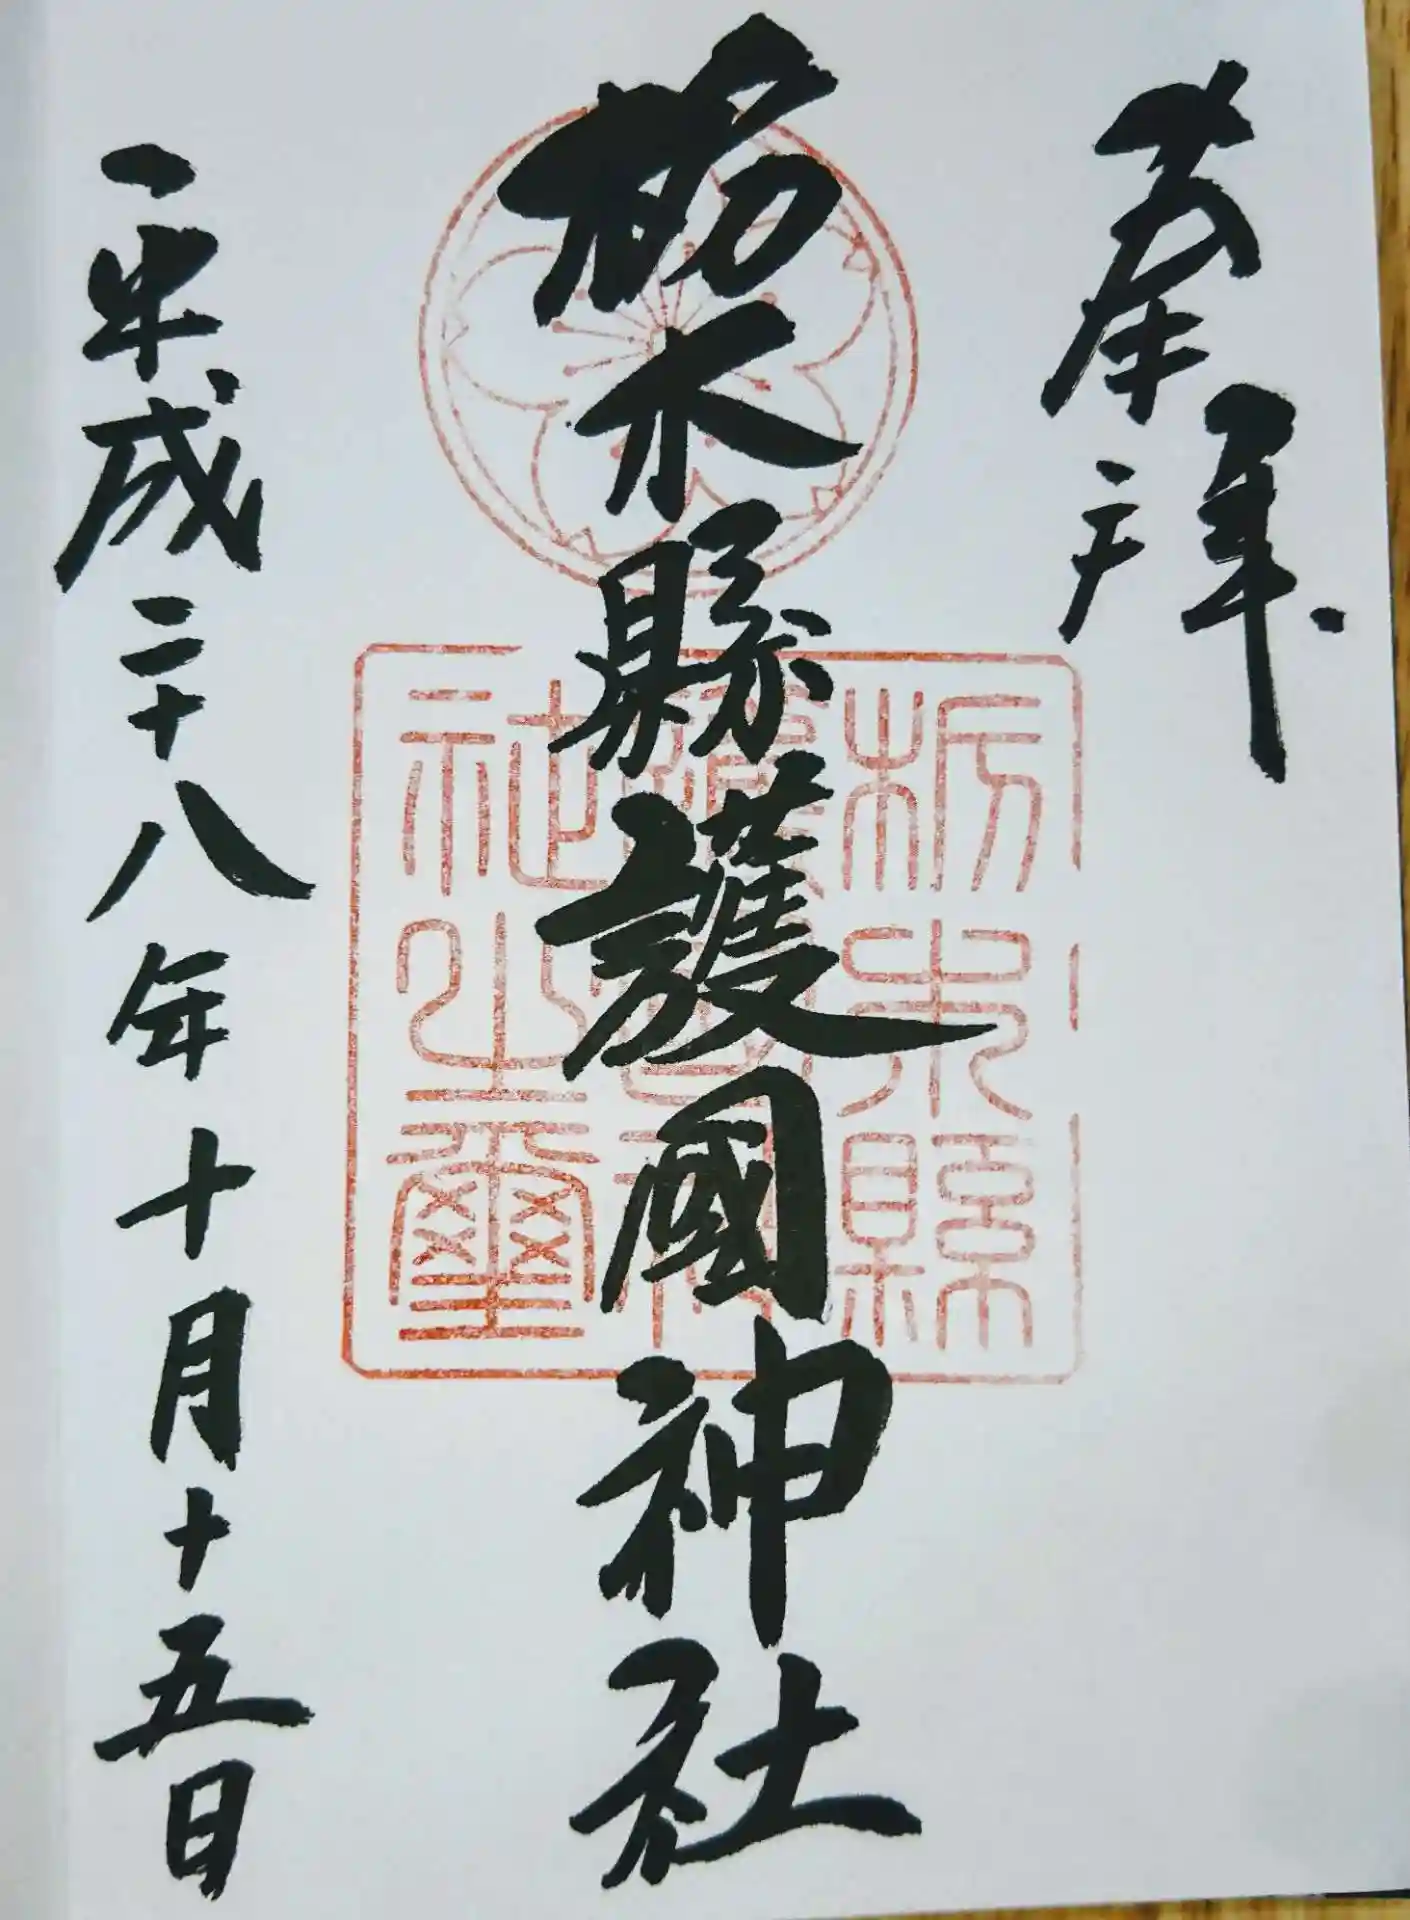 奉拝
栃木縣護國神社
平成二十八年十月十五日
栃木縣
護國神
社之璽